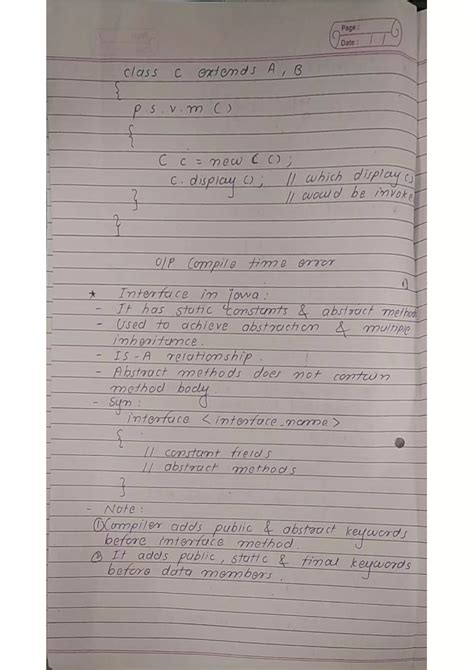 Page :
Date : / /
class C extends A, B
{
p s.v.m ()
{
C c = new C ();
c. display (); // which display ()
} // would be invoke
}
O/P Compile time error
* Interface in java :
- It has static constants & abstract method
- Used to achieve abstraction & multiple
inheritance.
- IS-A relationship.
- Abstract methods does not contain
method body.
- Syn :
interface <interface_name>
{
// constant fields
// abstract methods
}
- Note :
① Compiler adds public & abstract keywords
before interface method.
② It adds public, static & final keywords
before data members.